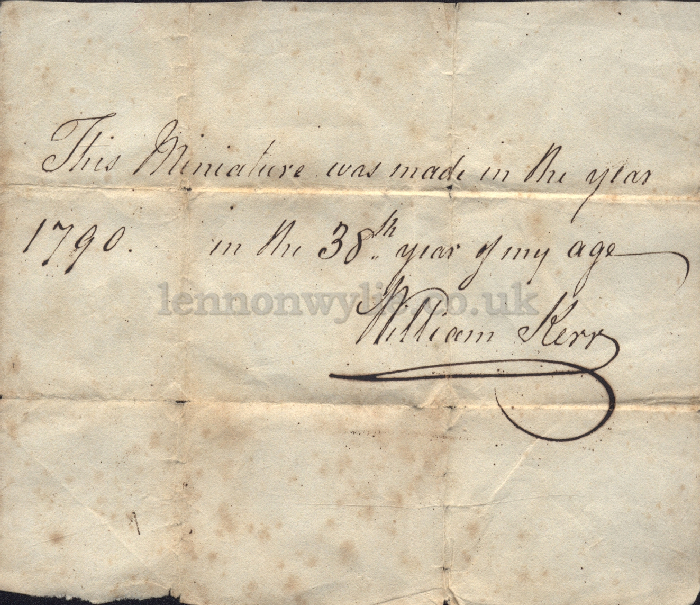 This Miniature was made in the year
1790. in the 38th. year of my age
lennonwylie.co.uk
William Kerr